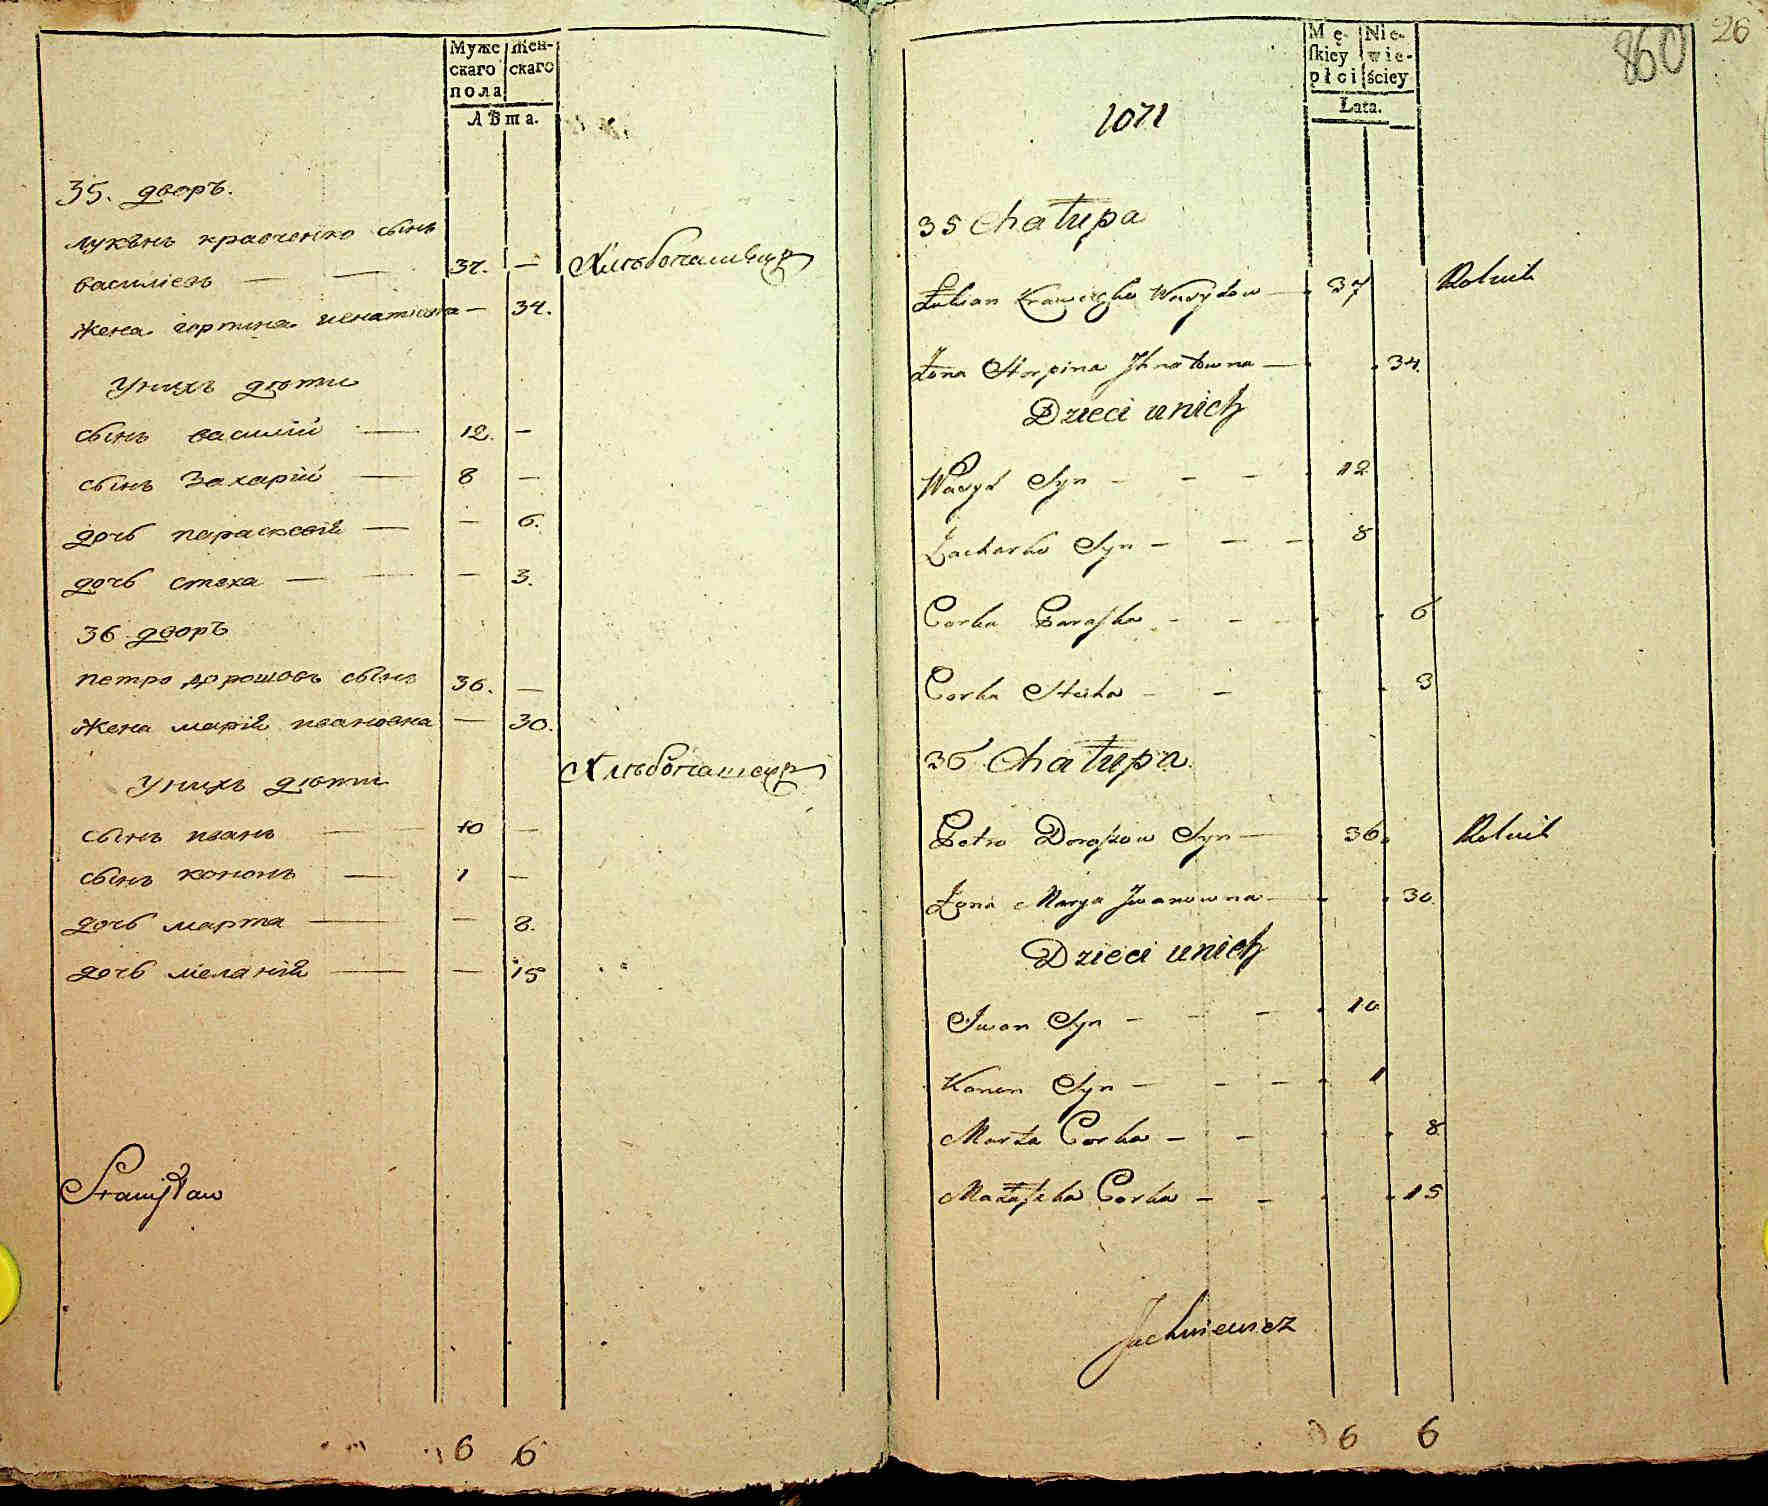 Муже Жен-
скаго скаго
пола
Лѣта.
35. дворъ.
лукянъ кравченко сынъ
василіевъ — — 37. — Хлѣбопашецъ
жена горпина игнатювна — 34.
У нихъ дѣти
сынъ василий — 12. —
сынъ Захарій — 8 —
дочь параскевія — — 6.
дочь стеха — — — 3.
36 дворъ
петро дорошовъ сынъ 36. —
жена марія ивановна — 30.
Хлѣбопашецъ
У нихъ дѣти
сынъ иванъ — — 10 —
сынъ кононъ — 1 —
дочь марта — — 8.
дочь меланія — — 15
Stanisław
6 6
26
860
Mę- Nie-
skiey wie-
płci ściey
Lata.
1071
35 Chałupa
Łukian Krawczeko Wasylow — 37 Rolnik
Żona Horpina Ihnatowna — 34.
Dzieci unich
Wasyl Syn - - - 12
Zacharko Syn - - - 8
Corka Paraska - - - 6
Corka Steha - - 3
36 Chałupa
Petro Doroszow Syn — 36. Rolnik
Żona Marya Iwanowna — 30
Dzieci unich
Iwan Syn - - - 10
Konon Syn - - - 1
Marta Corka - - 8
Małaszka Corka - - 15
Jachniewicz
6 6